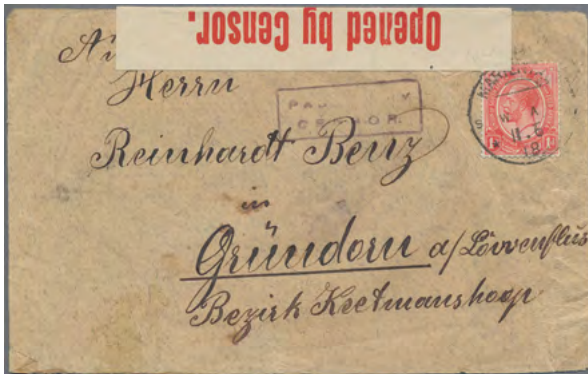 Opened by Censor.
An
Herrn
Reinhardt Benz
in
Gründorn a/Löwenflus
Bezirk Keetmanshoop
CENSOR.